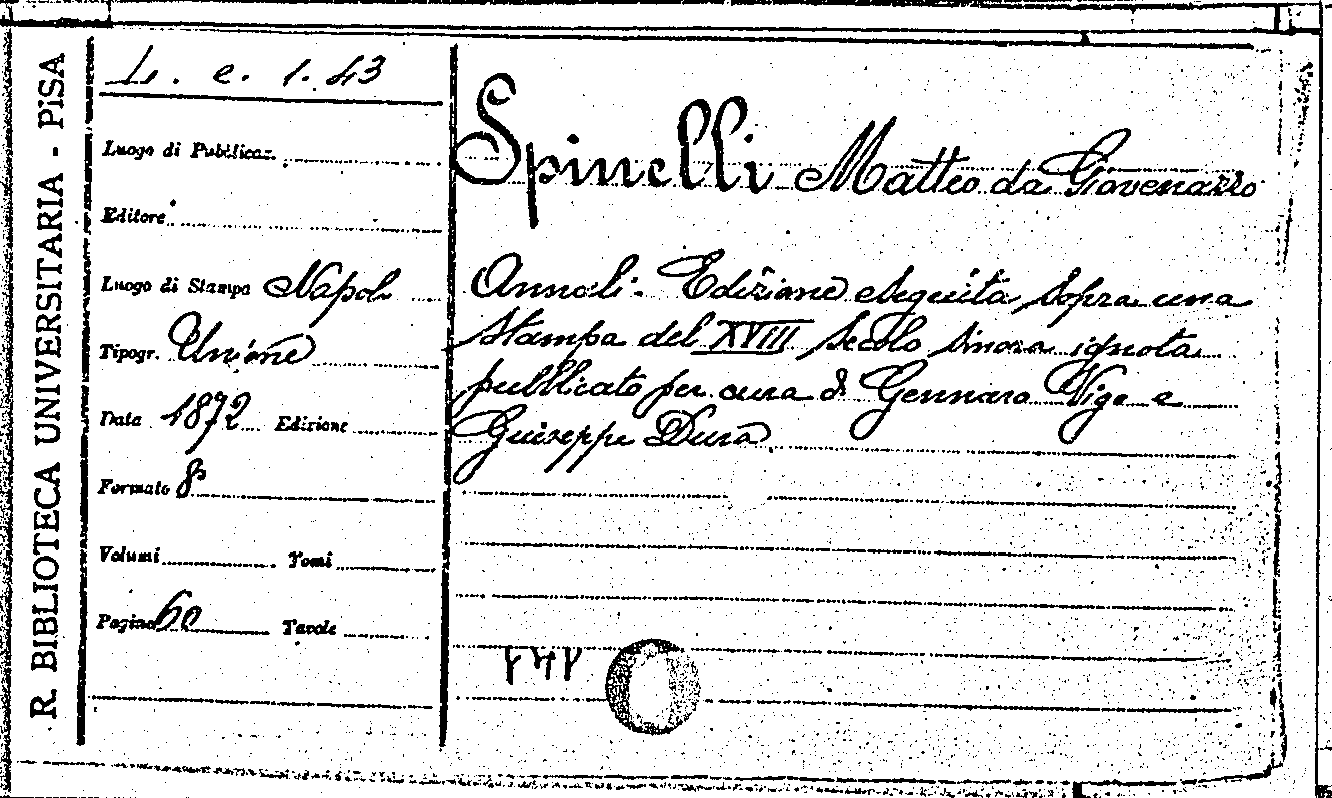 R. BIBLIOTECA UNIVERSITARIA - PISA
L. e. 1. 43
Luogo di Pubblicaz.
Editore
Luogo di Stampa Napoli
Tipogr. Unione
Data 1872 Edizione
Formato 8º
Volumi Tomi
Pagine 60 Tavole
Spinelli Matteo da Giovenazzo
Annali. Edizione eseguita sopra una
stampa del XVIII secolo sinora ignota
pubblicato per cura di Gennaro Vigo e
Giuseppe Dura